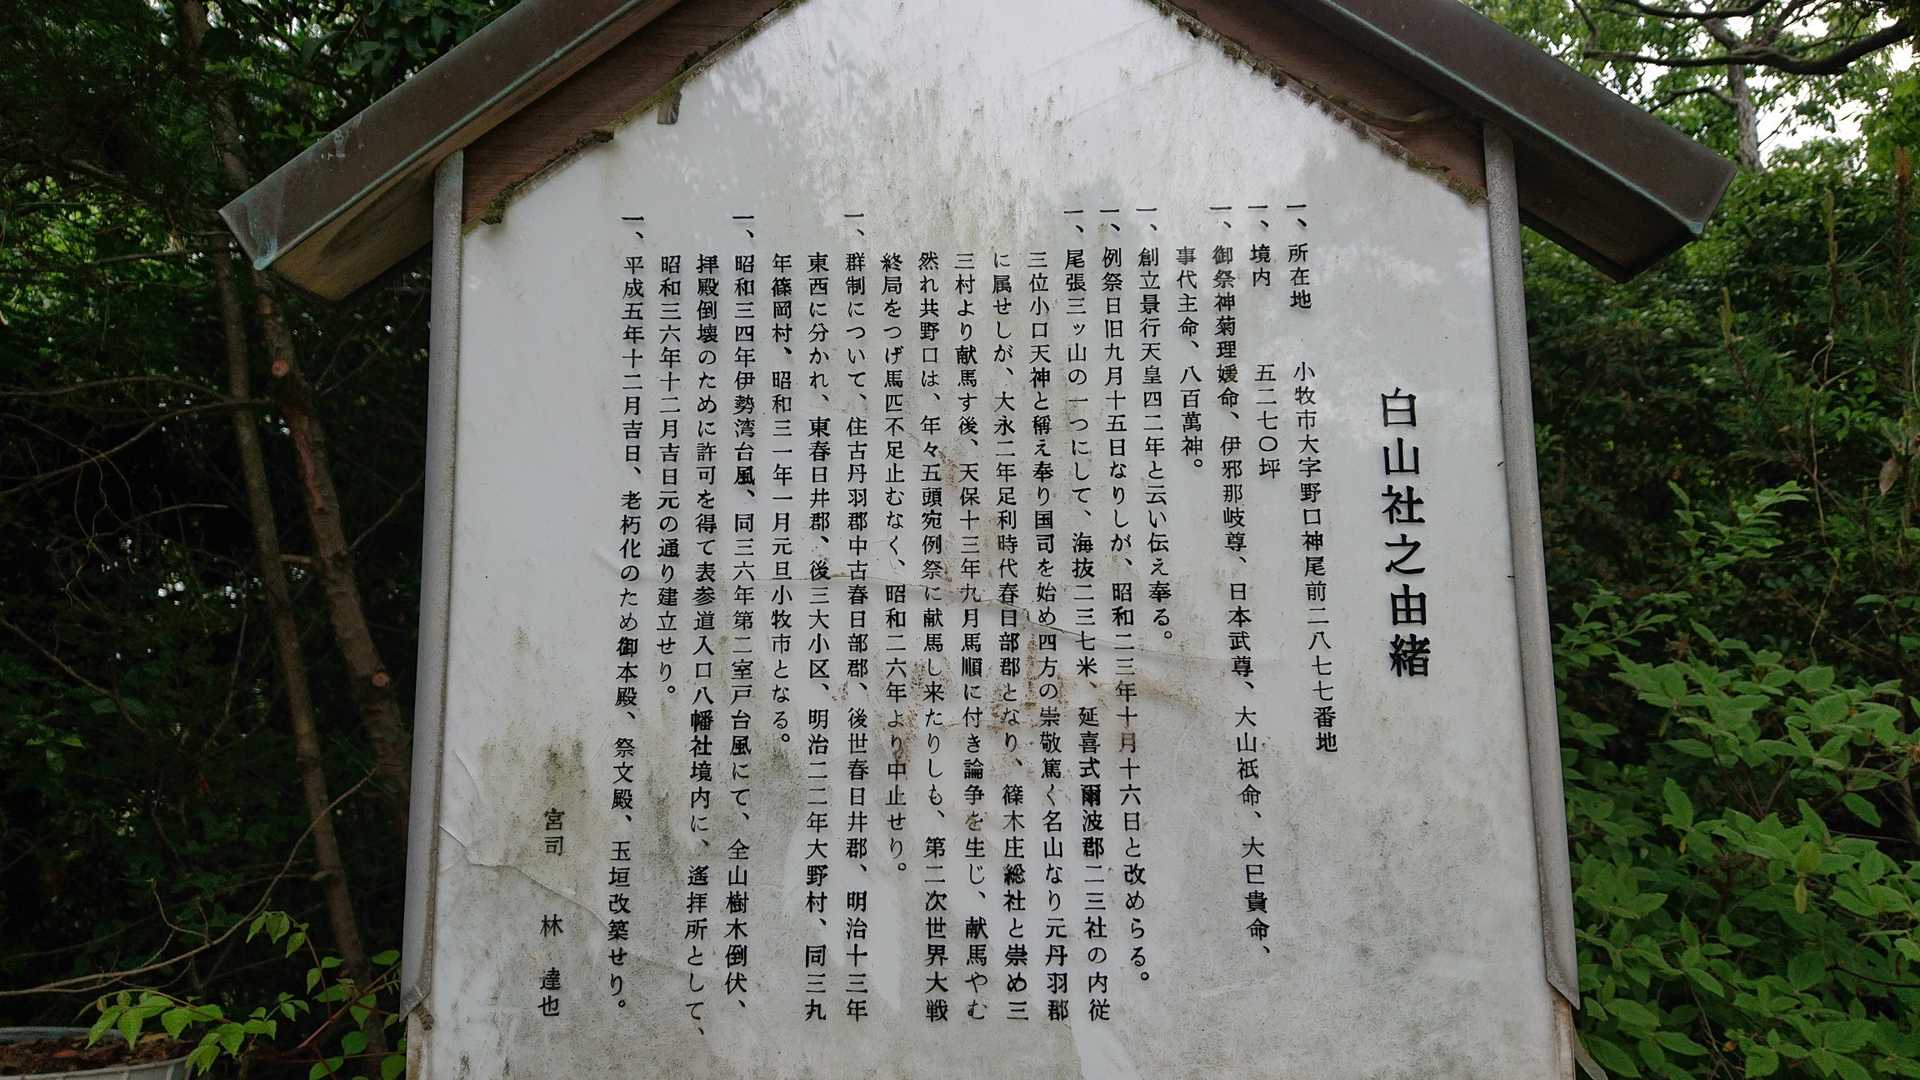 白山社之由緒
一、所在地　小牧市大字野口神尾前二八七七番地
一、境内　五二七〇坪
一、御祭神菊理媛命、伊邪那岐尊、日本武尊、大山祇命、大巳貴命、
事代主命、八百萬神。
一、創立景行天皇四二年と云い伝え奉る。
一、例祭日旧九月十五日なりしが、昭和二三年十月十六日と改めらる。
一、尾張三ッ山の一つにして、海抜二三七米、延喜式爾波郡二三社の内従
三位小口天神と稱え奉り国司を始め四方の崇敬篤く名山なり元丹羽郡
に属せしが、大永二年足利時代春日部郡となり、篠木庄総社と崇め三
三村より献馬す後、天保十三年九月馬順に付き論争を生じ、献馬やむ
然れ共野口は、年々五頭宛例祭に献馬し来たりしも、第二次世界大戦
終局をつげ馬匹不足止むなく、昭和二六年より中止せり。
一、群制について、住古丹羽郡中古春日部郡、後世春日井郡、明治十三年
東西に分かれ、東春日井郡、後三大小区、明治二二年大野村、同三九
年篠岡村、昭和三一年一月元旦小牧市となる。
一、昭和三四年伊勢湾台風、同三六年第二室戸台風にて、全山樹木倒伏、
拝殿倒壊のために許可を得て表参道入口八幡社境内に、遙拝所として、
昭和三六年十二月吉日元の通り建立せり。
一、平成五年十二月吉日、老朽化のため御本殿、祭文殿、玉垣改築せり。
宮司　林　達也